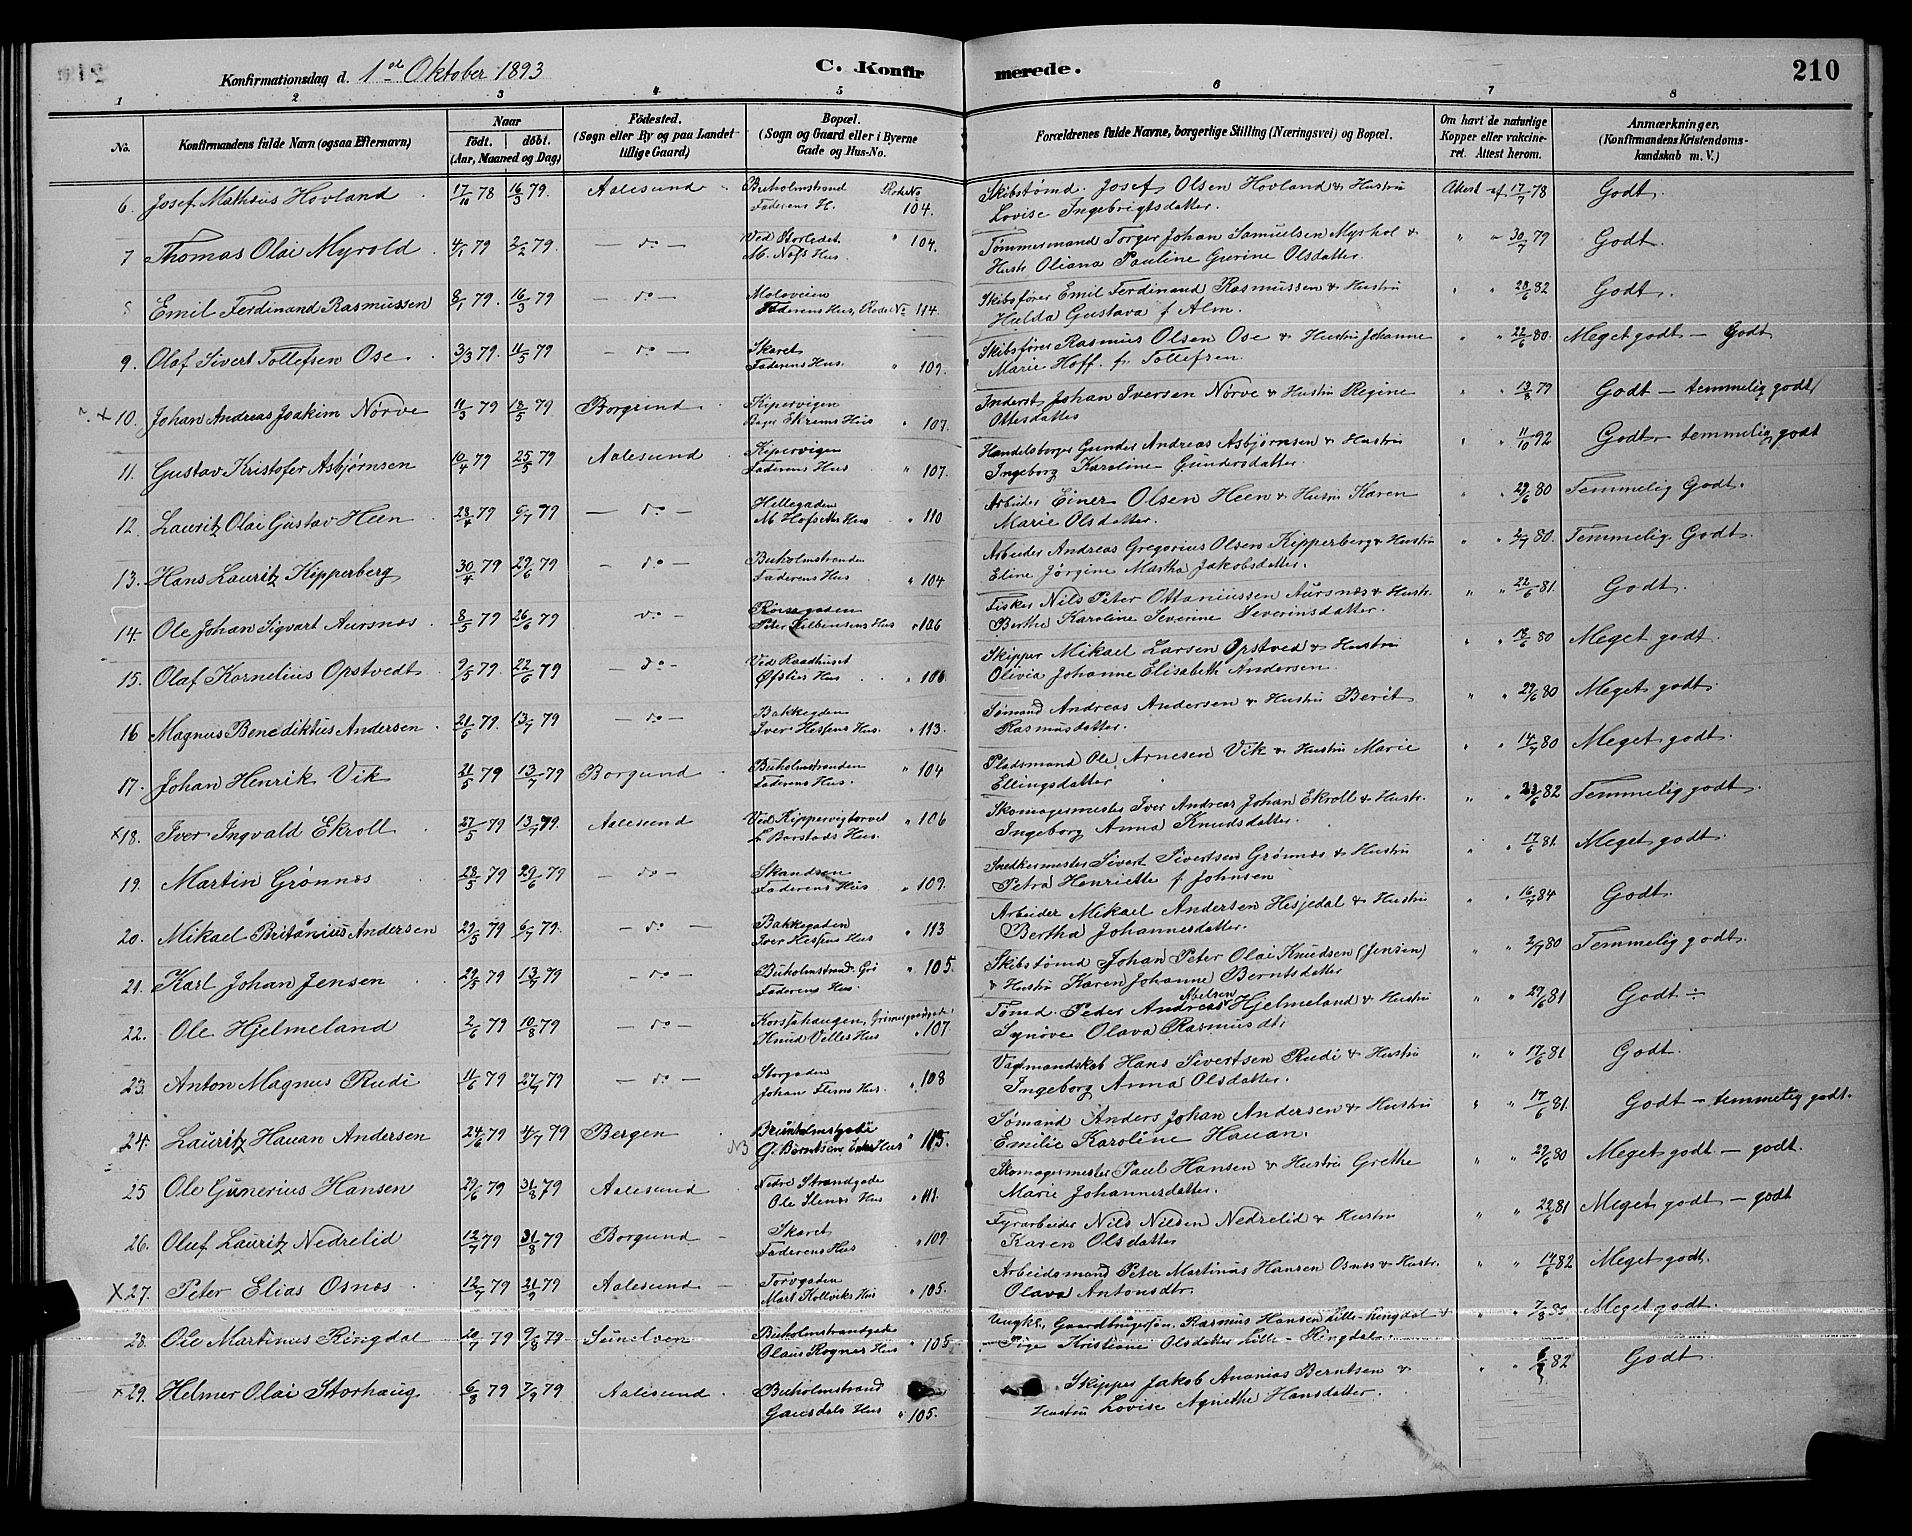 Konfirmationsdag d. 1ste Oktober 1893
C. Konfirmerede.
210
1 2 3 4 5 6 7 8
No.
Konfirmandens fulde Navn (ogsaa Efternavn)
Naar
født. døbt.
(Aar, Maaned og Dag)
Fødested.
(Sogn eller By og paa Landet tillige Gaard)
Bopæl.
(Sogn og Gaard eller i Byerne Gade og Hus-No.
Forældrenes fulde Navne, borgerlige Stilling (Næringsvei) og Bopæl.
Om havt de naturlige Kopper eller vaksineret. Attest herom.
Anmærkninger.
(Konfirmandens Kristendomskundskab m. V.)
6. Josef Mathæus Hovland 17/10 78 16/3 79. Aalesund Buholmstrand Rode No
Faderens H. 104.
Skibstømd. Josef Olsen Hovland & Hustru
Lovise Ingebrigtsdatter.
Attest af 17/7 78 Godt.
7 Thomas Olai Myrold 4/1 79 2/2 79. — do — Ved Storledet " 104.
M. Nøfs Hus.
Tømmermand Torger Johan Samuelsen Myrhol &
Hustr Oliana Pauline Gurine Olsdatter.
" " 30/7 79 Godt.
8 Emil Ferdinand Rasmussen 8/1 79. 16/3 79 — do — Moloveien
Faderens Hus, Rode No 114.
Skibsfører Emil Ferdinand Rasmussen & Hustru
Hulda Gustava f Alm.
" " 28/6 82 Godt.
9. Olaf Sivert Tollefsen Ose 3/3 79. 11/5 79 — do — Skaret
Faderens Hus. " 109.
Skibsfører Rasmus Olsen Ose & Hustru Johanne
Marie Hoff. f. Tollefsen.
" " 22/6 80. Meget godt — Godt
x 10. Johan Andreas Joakim Nørve 11/3 79 18/5 79 Borgund Kipervigen
Bager Ekrems Hus " 107.
Inderst Johan Iversen Nørve & Hustru Regine
Ottesdatter
" " 13/8 79 Godt — temmelig godt
11. Gustav Kristofer Asbjørnsen 10/4 79 25/5 79 Aalesund Kipervigen
Faderens Hus " 107.
Handelsborger Gunder Andreas Asbjørnsen & Hustru
Ingeborg Karoline Gundersdatter.
" " 11/10 92 Godt — temmelig godt
12. Lauritz Olai Gustav Heen 28/4 79 6/7 79 — do — Hellegaden
M. Hofseths Hus " 110
Arbeider Einer Olsen Heen & Hustru Karen
Marie Olsdatter.
" " 29/6 80 Temmelig Godt.
13. Hans Lauritz Kipperberg 30/4 79 29/6 79 — do — Buholmstranden
Faderens Hus. " 104
Arbeider Andreas Gregorius Olsen Kipperberg & Hustru
Eline Jørgine Martha Jakobsdatter.
" " 2/7 80. Temmelig Godt.
14. Ole Johan Sigvart Aursnes 8/5 79 26/6 79 do —
Hus " 106
Fisker Nils Peter Ottaniussen Aursnæs & Hustr.
Berthe Karoline Severine Severinsdatter.
" " 22/6 81. Godt.
15. Olaf Kornelius Opstvedt 9/5 79. 22/6 79 — do — Ved Raadhuset
Øfsties Hus " 106
Skipper Mikael Larsen Opstved & Hustru
Olivia Johanne Elisabeth Andersen.
" " 18/6 80 Meget godt.
16 Magnus Benediktus Andersen 21/5 79. 13/7 79 — do — Bakkegaden
Iver Hessens Hus. " 113.
Sømand Andreas Andersen & Hustru Berit
Rasmusdatter.
" " 29/6 80 Meget godt.
17. Johan Henrik Vik 21/5 79 13/7 79 Borgund Buholmstranden " 104
Faderens Hus.
Pladsmand Ole Arnesen Vik & Hustru Marie
Ellingsdatter
" " 14/7 80 Meget godt.
x18. Iver Ingvald Ekroll 27/5 79 13/7 79. Aalesund Ved Kippervigtorvet " 106
L. Borstads Hus.
Skomagermester Iver Andreas Johan Ekroll & Hustr.
Ingeborg Anna Knudsdatter.
" " 23/6 82 Temmelig godt.
19. Martin Grønnes 28/5 79 29/6 79 — do — Skandsen
Faderens Hus " 109.
Snedkermester Sivert Sivertsen Grønnæs & Hustru
Petra Henriette f Johnsen
" " 17/6 81. Meget godt.
20. Mikael Britanius Andersen 29/5 79 6/7 79. — do — Bakkegaden
Iver Hessens Hus " 113
Arbeider Mikael Andersen Hesjedal & Hustru
Bertha Johannesdatter.
" " 16/7 84 Godt.
21. Karl Johan Jensen 29/5 79 13/7 79 — do — Buholmstrand. Grő " 105.
Faderens Hus.
Skibstømd Johan Peter Olai Knudsen (Jensen)
& Hustru Karen Johanne Berntsdatter
" " 2/7 80 Temmelig godt.
22. Ole Hjelmeland 2/6 79 10/8 79 — do — Korsfahaugen,
Knud Velles Hus " 107.
Tømd. Peder Andreas Abelsen Hjelmeland & Hustru
Synøve Olava Rasmusdt.
" " 27/6 81 Godt ÷
23. Anton Magnus Rudi 11/6 79 27/7 79 — do — Storgaden
Johan Flems Hus. " 108
Vagtmandskab Hans Sivertsen Rudi & Hustru
Ingeborg Anna Olsdatter.
" " 17/6 81 Godt.
24. Lauritz Hauan Andersen 24/6 79 4/7 79 Bergen
NB G. Berntsens Enkes Hus " 115.
Sømand Anders Johan Andersen & Hustru
Emilie Karoline Hauan.
" " 17/6 81. Godt — temmelig godt.
25 Ole Gunerius Hansen 29/6 79 31/8 79 Aalesund Nedre Strandgade
Ole Slenes Hus " 111.
Skomagermester Paul Hansen & Hustru Grethe
Marie Johannesdatter.
" " 29/6 80 Meget godt — godt.
26. Oluf Lauritz Nedrelid 12/7 79 31/8 79 Borgund — Skaret
Faderens Hus " 109
Fyrarbeider Nils Nilsen Nedrelid & Hustru
Karen Olsdatter
" " 22/6 81 Meget godt — godt
X 27. Peter Elias Osnes 12/7 79 21/9 79 Aalesund — Torvgaden
Mart. Kollviks Hus " 105.
Arbeidsmand Peter Martinus Hansen Osnes & Hustr.
Olava Antonsdtr.
" " 17/6 82 Meget godt.
28. Ole Martinus Ringdal 20/7 79 9/8 79 Sunelven Buholmstrandgade
Olaus Rognes Hus " 105
Ungk. Gaardbrugersøn Rasmus Hansen Lille-Ringdal &
Pige Kristiane Olsdatter Lille-Ringdal.
" " 7/8 80 Meget godt.
x 29. Helmer Olai Storhaug 6/8 79 7/9 79 Aalesund Buholmstrand
Gausdals Hus " 105.
Skipper Jakob Ananias Berntsen &
Hustru Lovise Agnethe Hansdatter.
" " 82 Godt.